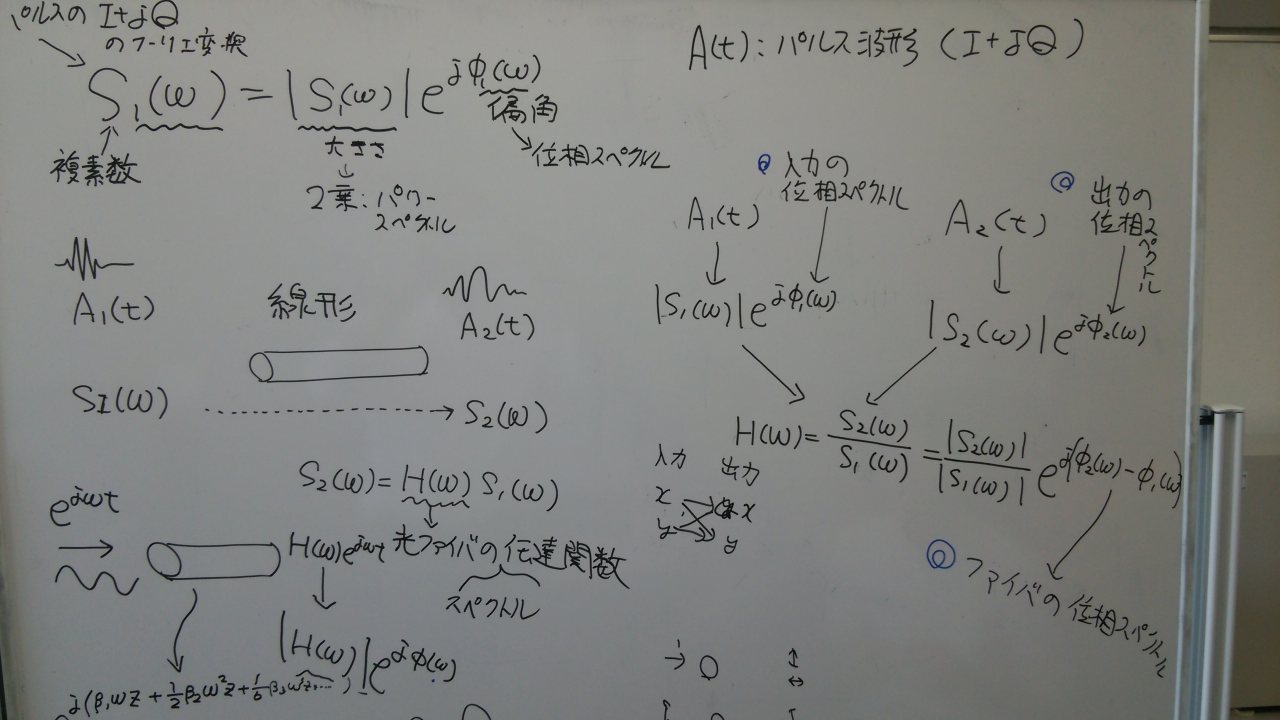 パルスの I+jQ
のフーリエ変換
S₁(ω) = |S₁(ω)| e^{jφ₁(ω)}
偏角
位相スペクトル
複素数
大きさ
2乗: パワー
スペクトル
A₁(t)
線形
A₂(t)
SI(ω)
S₂(ω)
S₂(ω) = H(ω) S₁(ω)
e^{jωt}
H(ω)e^{jωt}
光ファイバの伝達関数
スペクトル
|H(ω)| e^{jφ(ω)}
j(β₁ωz + 1/2 β₂ω²z + 1/6 β₃ω³z, ... )
A(t): パルス波形 (I+jQ)
入力の
位相スペクトル
A₁(t)
|S₁(ω)| e^{jφ₁(ω)}
出力の
位相スペクトル
A₂(t)
|S₂(ω)| e^{jφ₂(ω)}
H(ω) = S₂(ω)/S₁(ω) = |S₂(ω)|/|S₁(ω)| e^{j(φ₂(ω)-φ₁(ω)}
入力 出力
x x
y y
ファイバの位相スペクトル